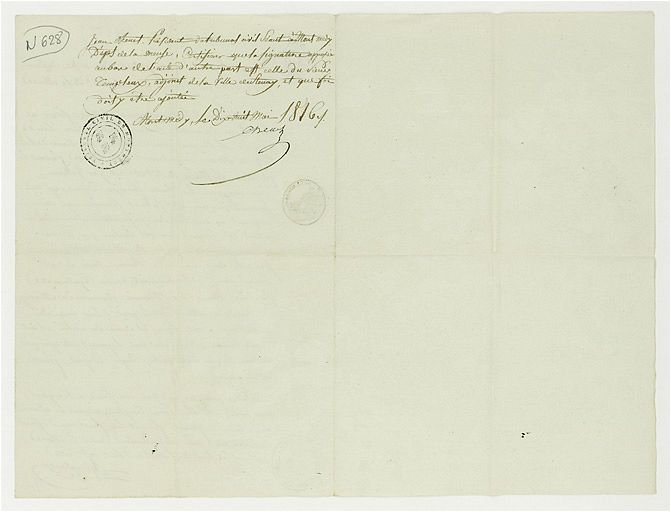 N 628
Jean Chenet, Président du tribunal civil séant à Montmédy
Dépt de la meuse, Certifions que la signature apposée
au bas de l'acte d'autre part est celle du Sieur
adjoint de la Ville de Stenay, et que foi
doit y etre ajoutée
Montmédy, le Dix huit Mai 1816
Chenet